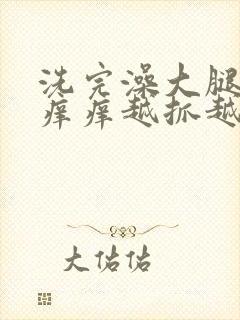 洗完澡大腿
痒痒越抓越
大佑佑